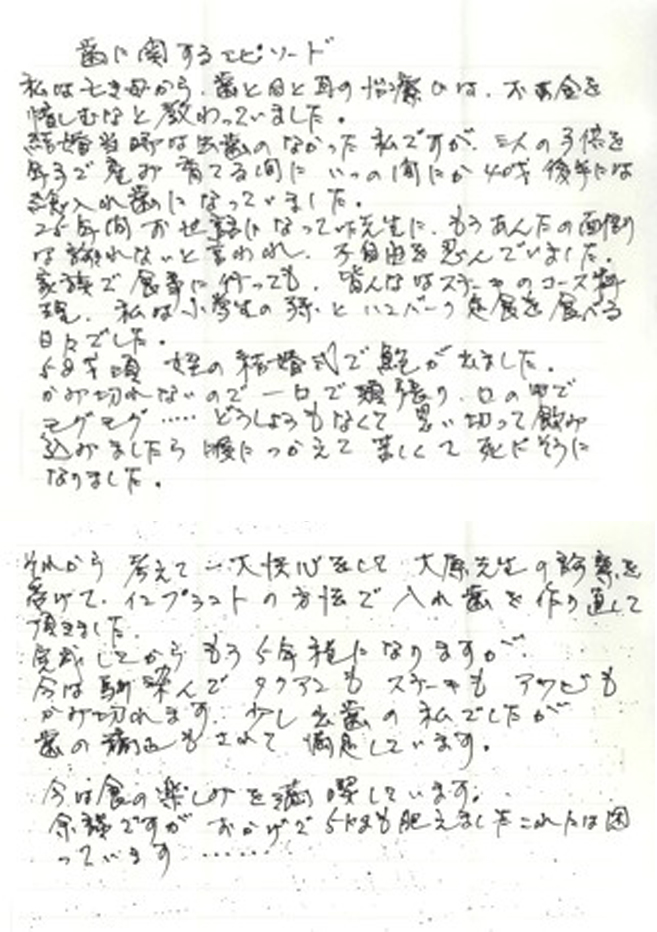 歯に関するエピソード
私は亡き母から、歯と目と耳の治療ひは、お金を
惜しむなと教わっていました。
結婚当時は虫歯のなかった私ですが、三人の子供を
年子で産み育てる間にいつの間にか40才後半には
総入れ歯になっていました。
25年間お世話になっていた先生に、もうあんたの面倒
は診れないと言われ、不自由を忍んでいました。
家族で食事に行っても、皆んなはステーキのコース料
理、私は小学生の孫とハンバーグ定食を食べる
日々でした。
58才頃 姪の結婚式で鮑が出ました。
かみ切れないので一口で頬張り、口の中で
モグモグ…… どうしょうもなくて思い切って飲み
込みましたら喉につかえて苦しくて死にそうに
なりました。
それから考えて一大決心をして大原先生の診察を
受けて、インプラントの方法で入れ歯を作り直して
頂きました。
完成してからもう5年程になりますが
今は馴染んでタクアンもステーキもアワビも
かみ切れます。少し出歯の私でしたが
歯の矯正もされて満足しています。
今は食の楽しみを満喫しています。
余談ですがおかげで5kgも肥えましたこれには困
っています ……